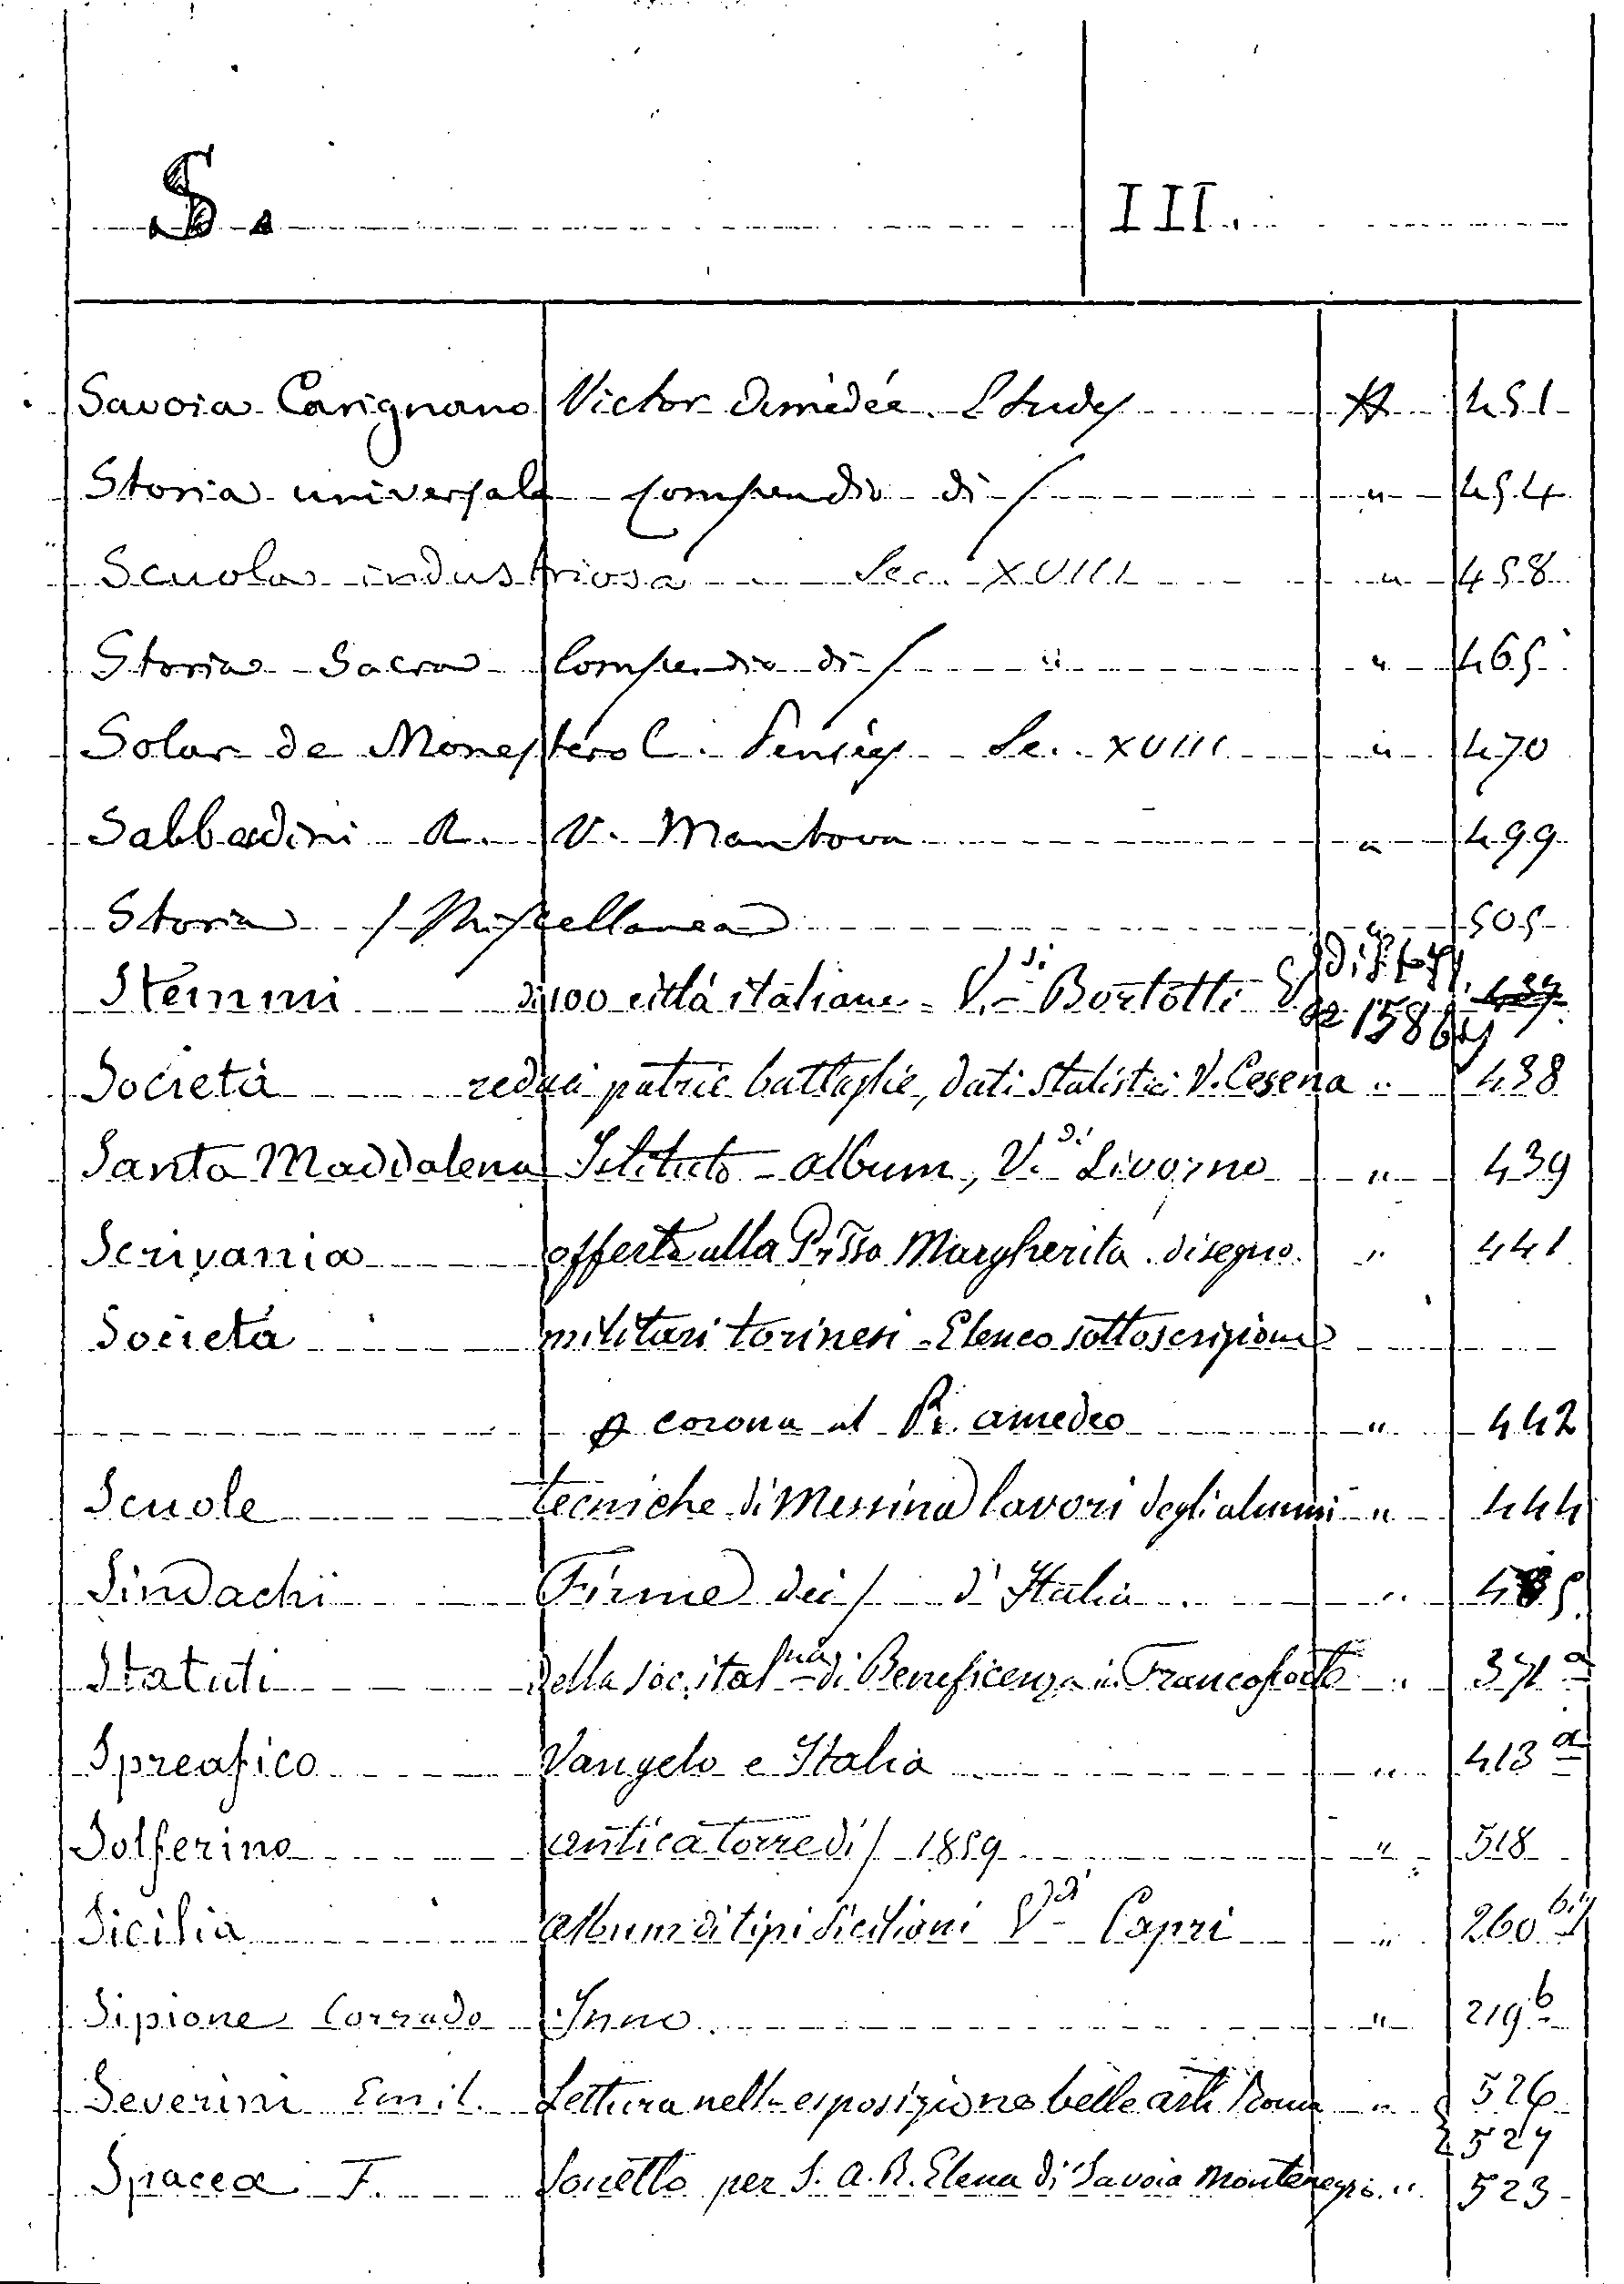 S. III.
Savoia Carignano Victor Amédée. Etudes 451
Storia universale compendio di / " 454
Scuola industriosa Sec. XVIII " 458
Storia Sacra Compendio di / " " 465
Solar de Monesterol C. Pensées Se. XVIII " 470
Sabbadini R. V. Mantova " 499
Storia / Miscellanea " 505
Stemmi di 100 città italiane - V.di Bortolti E. 437
15864
Società reduci patrie battaglie, dati statistici V. Cesena " 438
Santa Maddalena Istituto - album, V.di Livorno " 439
Scrivania offerta alla Pr̃ssa Margherita. disegno. " 441
Società militari torinesi - Elenco sottoscrizione
p corona al Pr. Amedeo " 442
Scuole tecniche di Messina lavori degli alunni " 444
Sindachi Firme dei / d'Italia "
Statuti della soc. ital.na di Beneficenza in Francoforte " 371a
Spreafico Vangelo e Italia " 413a
Solferino antica torre di / 1859 " 518
Sicilia album di tipi siciliani V.di Capri " 260 bis
Sipione Corrado Inno " 219b
Severini Emil. Lettura nella esposizione belle arti Roma " 526
527
Spacca F. Sonetto per S. A. R. Elena di Savoia Montenegro. " 523